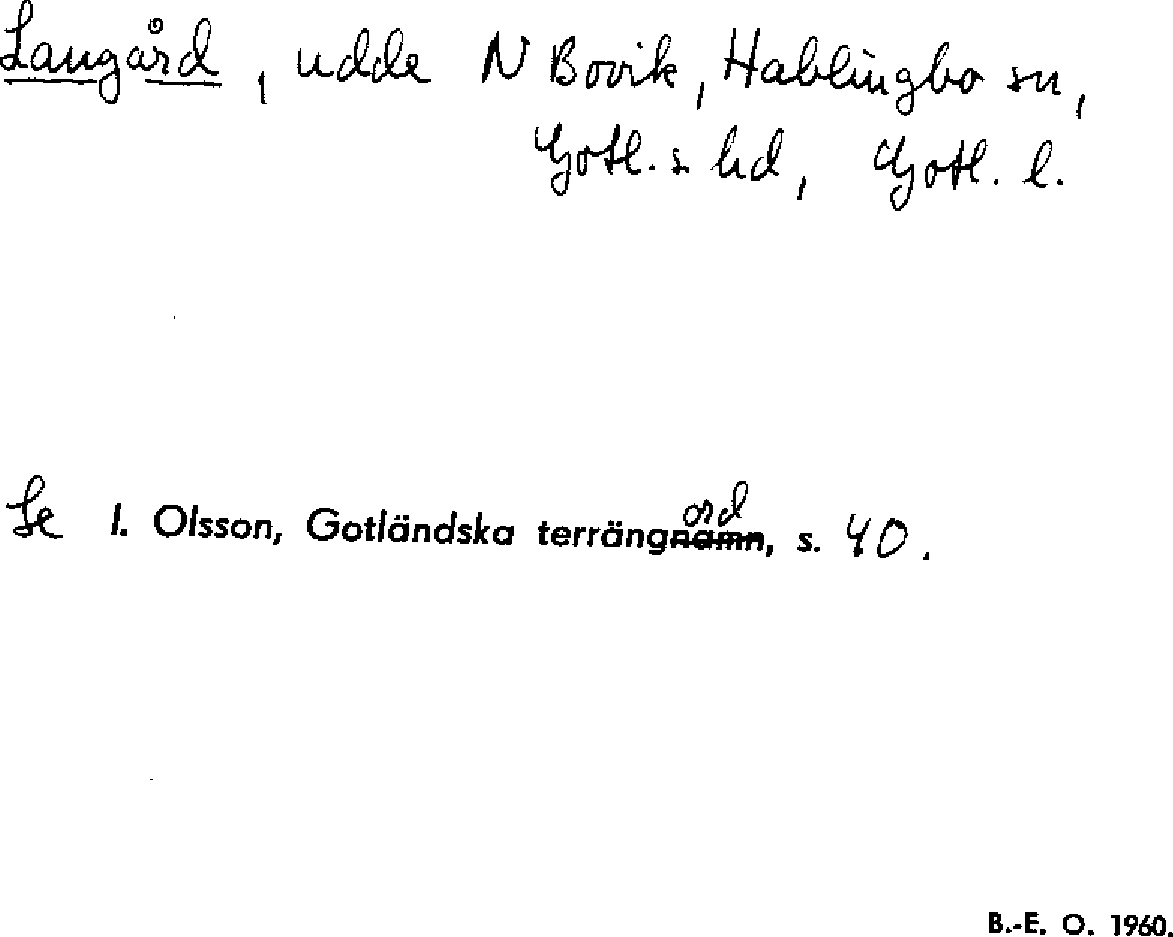 Langård, udde N Bovik, Hablingbo sn,
Gotl. s. hd, Gotl. l.
Se I. Olsson, Gotländska terrängord, s. 40.
B.-E. O. 1960.